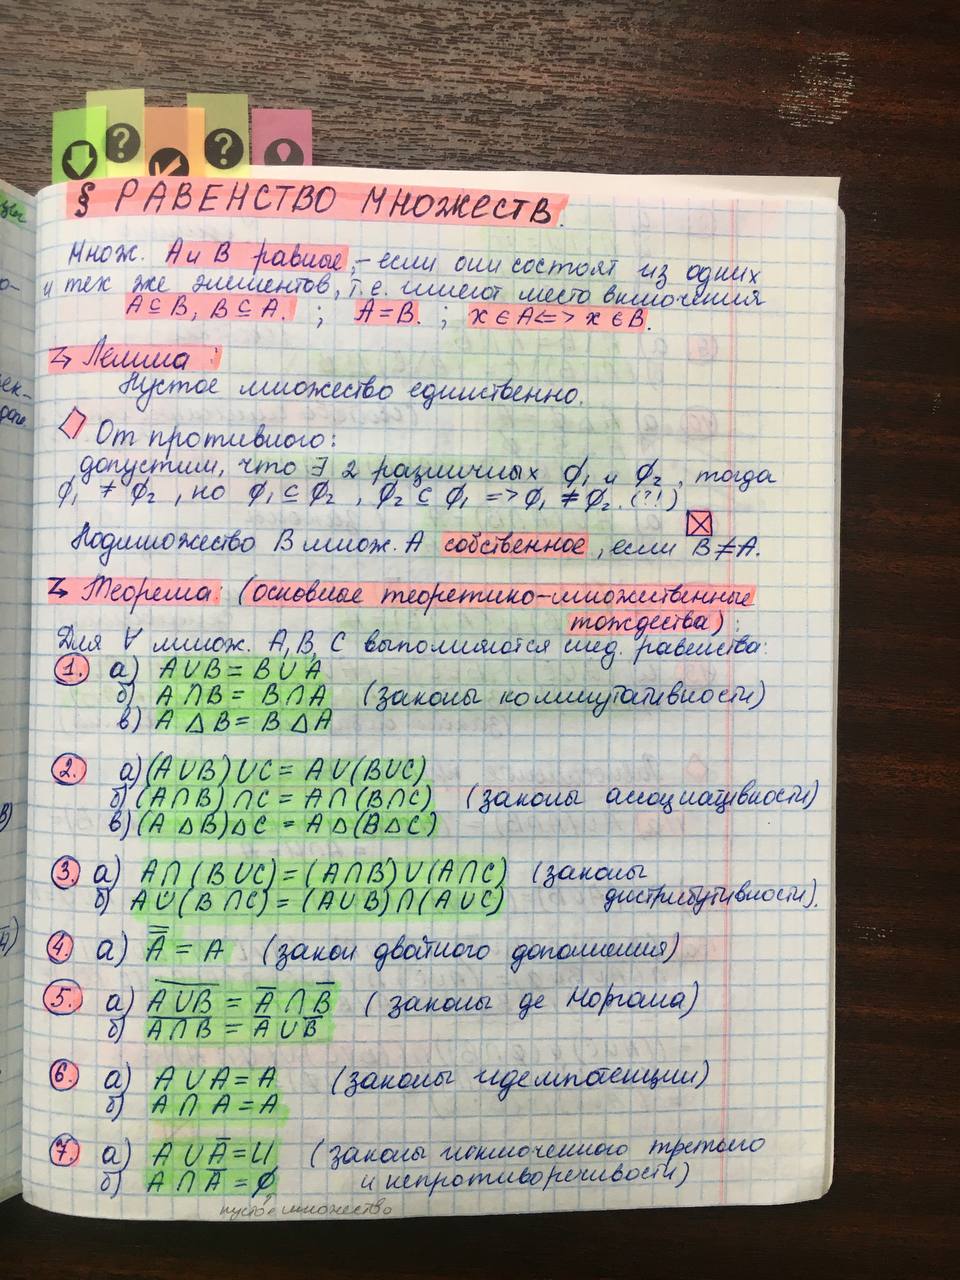 § РАВЕНСТВО МНОЖЕСТВ.
Множ. А и В равные, – если они состоят из одних
и тех же элементов, т.е. имеют место включения
A ⊆ B, B ⊆ A. ; A = B. ; x ∈ A <=> x ∈ B.
Лемма:
Пустое множество единственно.
От противного:
допустим, что ∃ 2 различных ∅₁ и ∅₂, тогда
∅₁ ≠ ∅₂, но ∅₁ ⊆ ∅₂, ∅₂ ⊆ ∅₁ => ∅₁ ≠ ∅₂. (?!)
Подмножество В множ. А собственное, если B ≠ A.
Теорема: (основные теоретико-множественные
тождества):
Для ∀ множ. А, В, С выполняются след. равенства:
1. а) A ∪ B = B ∪ A
б) A ∩ B = B ∩ A (законы коммутативности)
в) A △ B = B △ A
2. а) (A ∪ B) ∪ C = A ∪ (B ∪ C)
б) (A ∩ B) ∩ C = A ∩ (B ∩ C) (законы ассоциативности)
в) (A △ B) △ C = A △ (B △ C)
3. а) A ∩ (B ∪ C) = (A ∩ B) ∪ (A ∩ C) (законы
б) A ∪ (B ∩ C) = (A ∪ B) ∩ (A ∪ C) дистрибутивности).
4. а) A̿ = A (закон двойного дополнения)
5. а) A̅ ̅∪̅ ̅B̅ = A̅ ∩ B̅ (законы де Моргана)
б) A̅ ̅∩̅ ̅B̅ = A̅ ∪ B̅
6. а) A ∪ A = A (законы идемпотенции)
б) A ∩ A = A
7. а) A ∪ A̅ = U (законы исключенного третьего
б) A ∩ A̅ = ∅ и непротиворечивости)
пустое множество